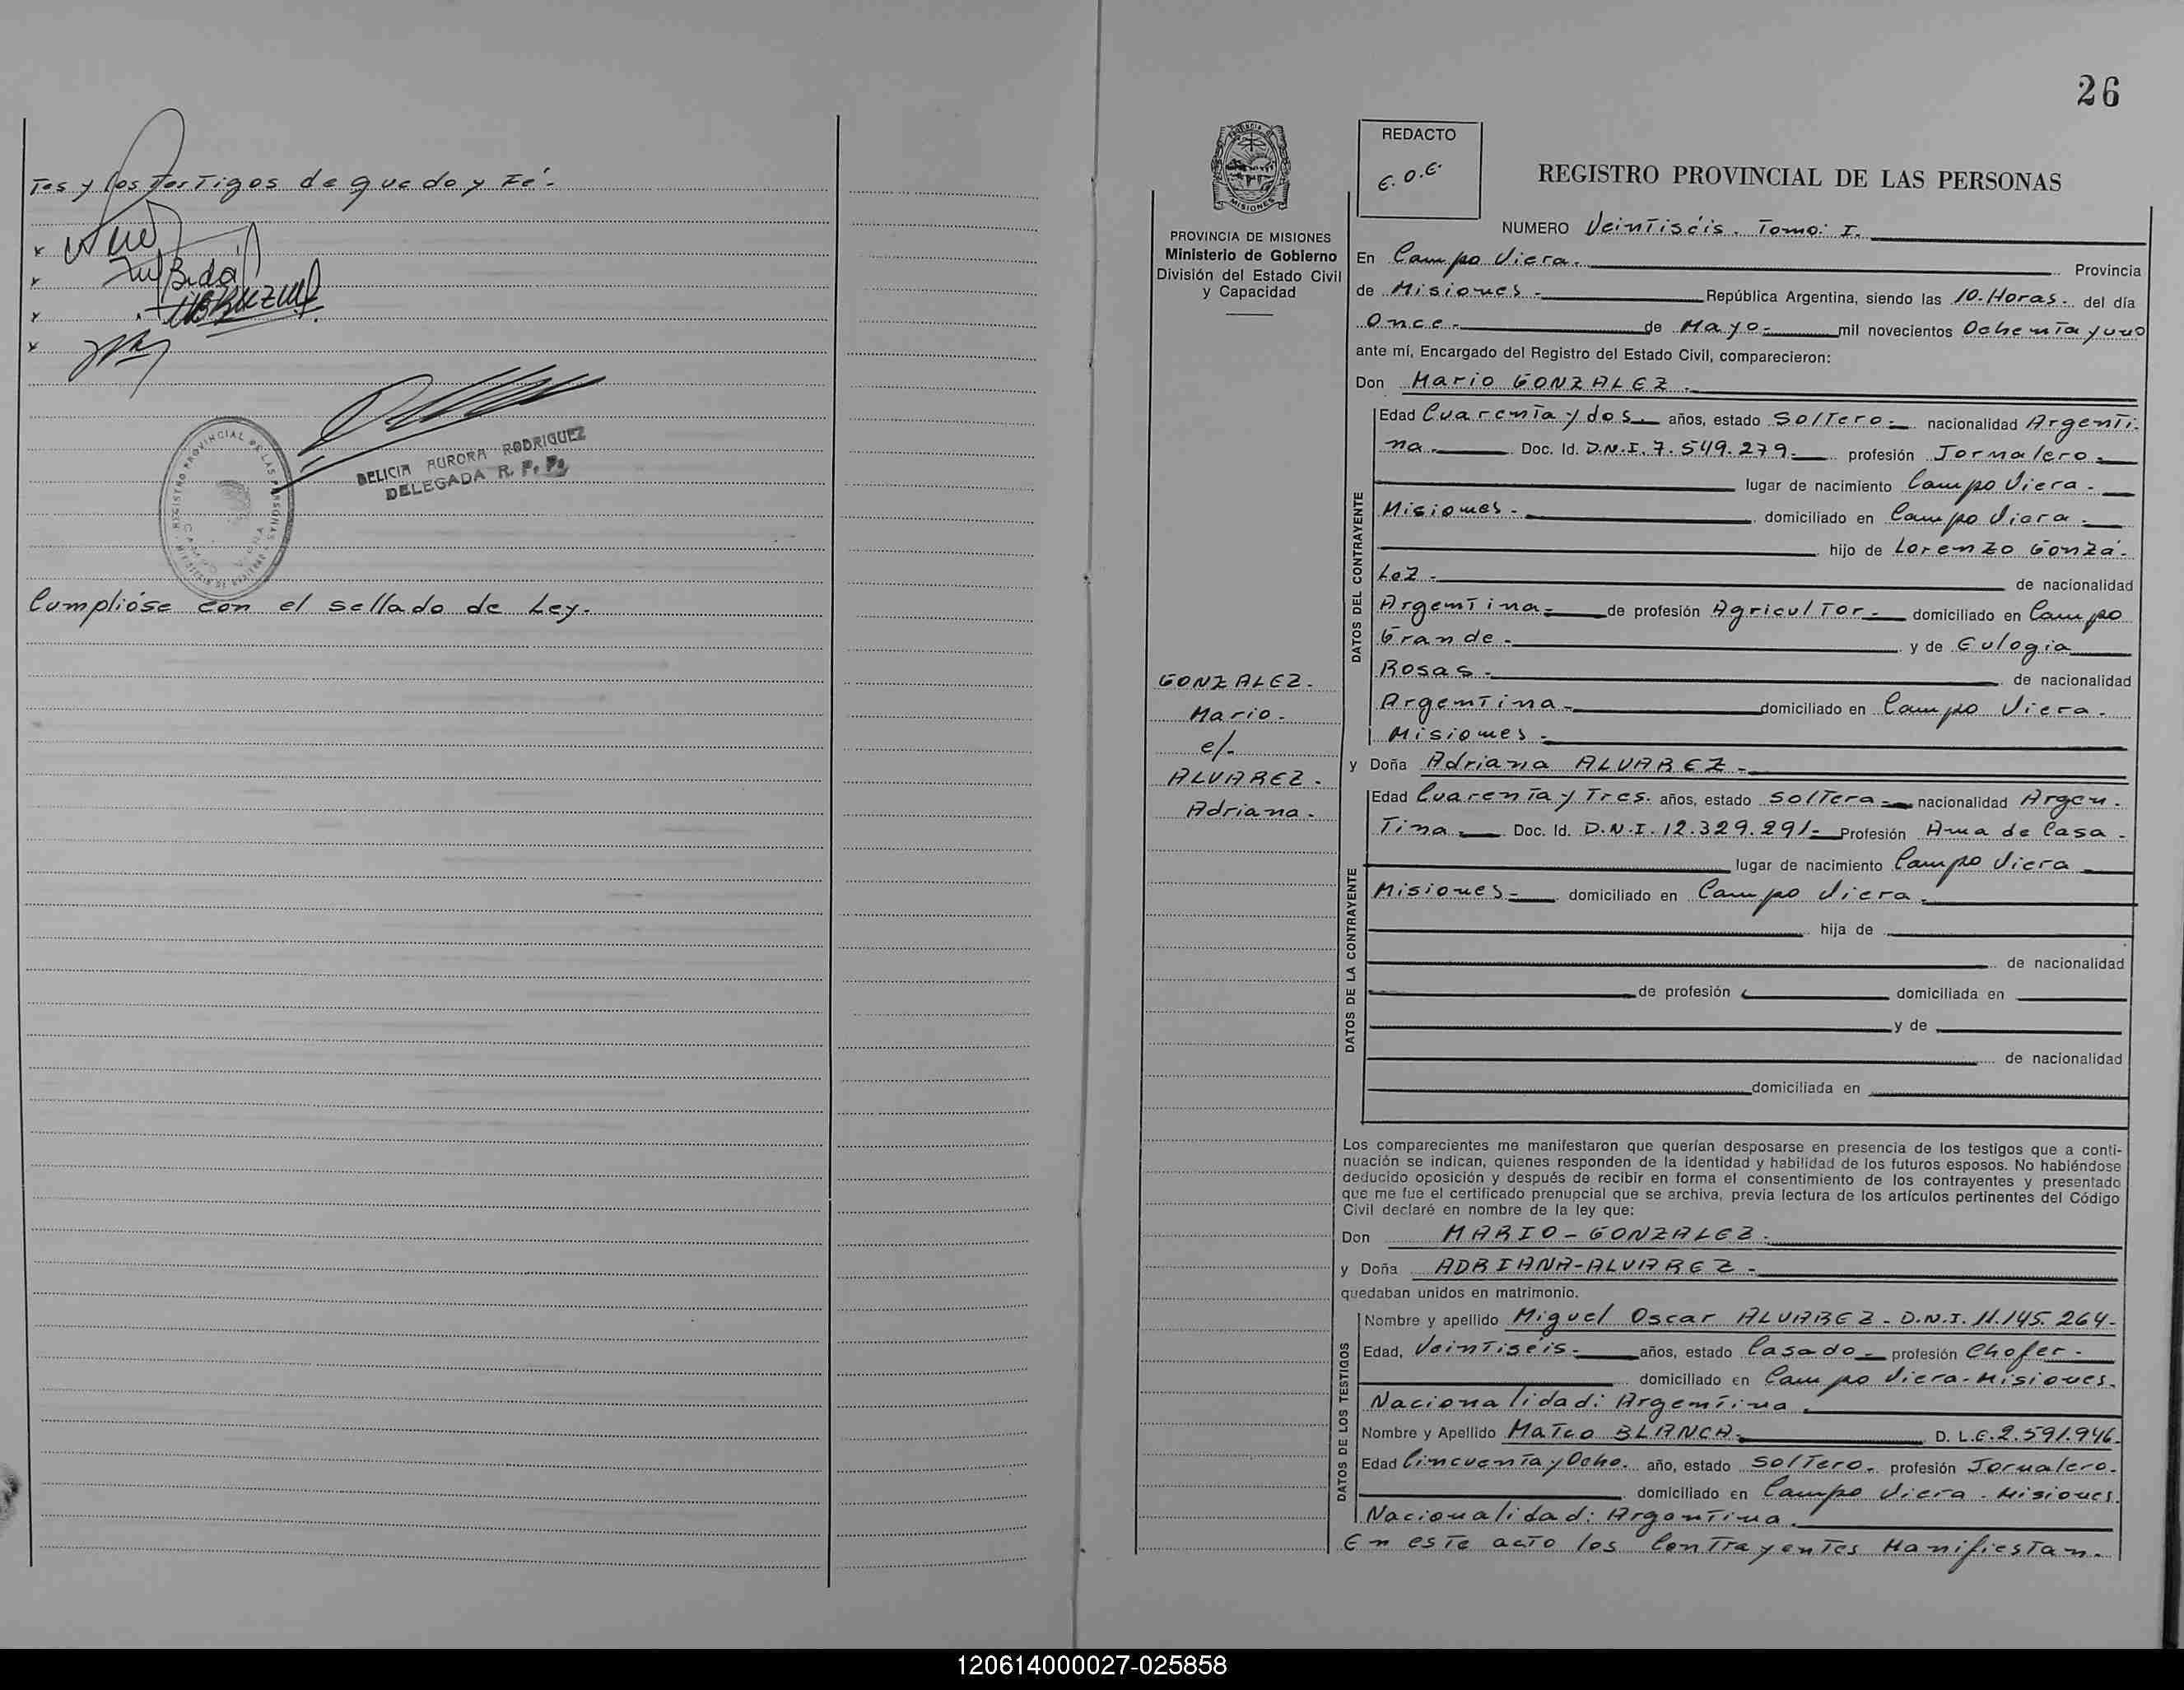 Tes y los Testigos de que doy Fé.-
DELICIA AURORA RODRIGUEZ
DELEGADA R. P. P.
REGISTRO PROVINCIAL DE LAS PERSONAS
Cumplióse con el sellado de Ley.-
26
PROVINCIA DE MISIONES
Ministerio de Gobierno
División del Estado Civil
y Capacidad
GONZALEZ.-
Mario.-
c/.
ALVAREZ.-
Adriana.-
REDACTO
E.O.E.
REGISTRO PROVINCIAL DE LAS PERSONAS
NUMERO Veintiséis. Tomo: I.
En Campo Viera.- Provincia
de Misiones.- República Argentina, siendo las 10.Horas.- del día
Once.- de Mayo.- mil novecientos Ochenta y uno
ante mí, Encargado del Registro del Estado Civil, comparecieron:
Don Mario GONZALEZ.-
DATOS DEL CONTRAYENTE
Edad Cuarenta y dos.- años, estado Soltero.- nacionalidad Argenti-
na.- Doc. Id. D.N.I. 7.549.279.- profesión Jornalero.-
lugar de nacimiento Campo Viera.-
Misiones.- domiciliado en Campo Viera.-
hijo de Lorenzo Gonzá-
Lez.- de nacionalidad
Argentina.- de profesión Agricultor.- domiciliado en Campo
Grande.- y de Eulogia
Rosas.- de nacionalidad
Argentina.- domiciliado en Campo Viera.-
Misiones.-
y Doña Adriana ALVAREZ.-
DATOS DE LA CONTRAYENTE
Edad Cuarenta y Tres. años, estado Soltera.- nacionalidad Argen-
Tina.- Doc. Id. D.N.I. 12.329.291.- Profesión Ama de Casa.-
lugar de nacimiento Campo Viera
Misiones.- domiciliado en Campo Viera.-
hija de
de nacionalidad
de profesión domiciliada en
y de
de nacionalidad
domiciliada en
Los comparecientes me manifestaron que querían desposarse en presencia de los testigos que a conti-
nuación se indican, quienes responden de la identidad y habilidad de los futuros esposos. No habiéndose
deducido oposición y después de recibir en forma el consentimiento de los contrayentes y presentado
que me fue el certificado prenupcial que se archiva, previa lectura de los artículos pertinentes del Código
Civil declaré en nombre de la ley que:
Don MARIO-GONZALEZ.-
y Doña ADRIANA-ALVAREZ.-
quedaban unidos en matrimonio.
DATOS DE LOS TESTIGOS
Nombre y apellido Miguel Oscar ALVAREZ.- D.N.I. 11.145.264-
Edad, Veintiseis.- años, estado Casado.- profesión Chofer.-
domiciliado en Campo Viera-Misiones.
Nacionalidad: Argentina.
Nombre y Apellido Mateo BLANCA.- D. L.E. 2.591.946.
Edad Cincuenta y Ocho.- año, estado Soltero.- profesión Jornalero.-
domiciliado en Campo Viera.Misiones.
Nacionalidad: Argentina.
En este acto los Contrayentes Manifiestan.-
120614000027-025858